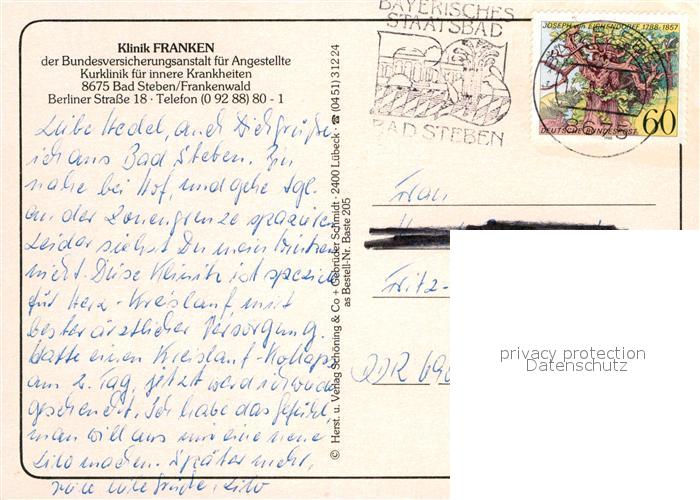 Klinik FRANKEN
der Bundesversicherungsanstalt für Angestellte
Kurklinik für innere Krankheiten
8675 Bad Steben/Frankenwald
Berliner Straße 18 · Telefon (0 92 88) 80 - 1
Liebe Hedel, auch Dich grüße
ich aus Bad Steben. Bin
nahe bei Hof, und gehe tgl.
an der Zonengrenze spazieren
Leider siehst Du mein
nicht. Diese Klinik ist speziell
für Herz-Kreislauf, mit
bester ärztlicher Versorgung.
Hatte einen Kreislauf-Kollaps
am 2. Tag, jetzt werd ich
geschont. Ich habe das Gefühl,
man will aus mir eine neue
Lilo machen. Später mehr,
viele liebe Grüße, Lilo
© Herst. u. Verlag Schöning & Co + Gebrüder Schmidt · 2400 Lübeck · ☎ (04 51) 3 12 24
as Bestell-Nr. Baste 205
BAYERISCHES
STAATSBAD
BAD STEBEN
JOSEPH von EICHENDORFF 1788-1857
DEUTSCHE BUNDESPOST
60
Frau
Fritz-
DDR 690
privacy protection
Datenschutz